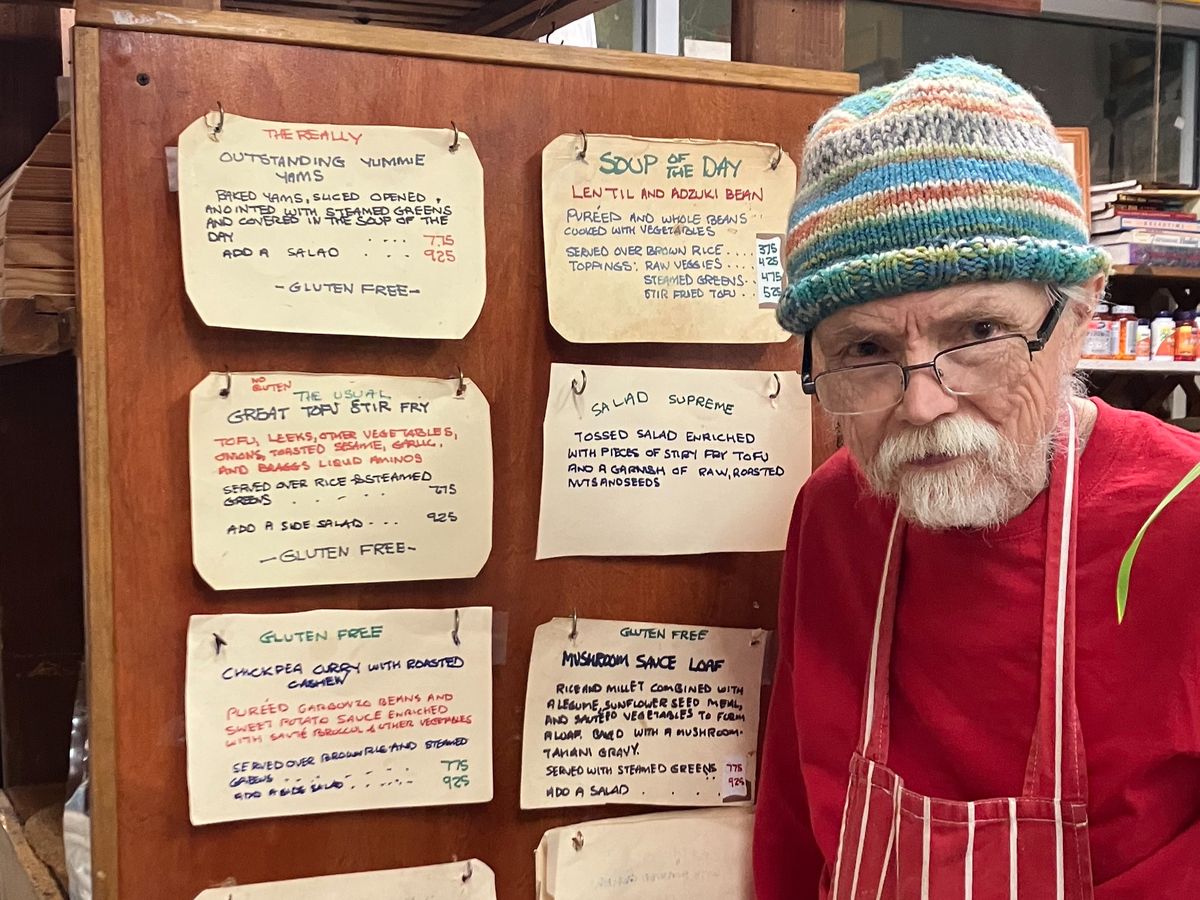 THE REALLY
OUTSTANDING YUMMIE
YAMS
BAKED YAMS, SLICED OPENED,
ANOINTED WITH STEAMED GREENS
AND COVERED IN THE SOUP OF THE
DAY .... 775
ADD A SALAD .... 925
-GLUTEN FREE-
SOUP OF THE DAY
LENTIL AND ADZUKI BEAN
PURÉED AND WHOLE BEANS
COOKED WITH VEGETABLES
SERVED OVER BROWN RICE.... 375
TOPPINGS: RAW VEGGIES.... 425
STEAMED GREENS.. 475
STIR FRIED TOFU.. 525
NO
GLUTEN
THE USUAL
GREAT TOFU STIR FRY
TOFU, LEEKS, OTHER VEGETABLES,
ONIONS, TOASTED SESAME, GARLIC,
AND BRAGGS LIQUID AMINOS
SERVED OVER RICE & STEAMED
GREENS .... 775
ADD A SIDE SALAD... 925
-GLUTEN FREE-
SALAD SUPREME
TOSSED SALAD ENRICHED
WITH PIECES OF STIRY FRY TOFU
AND A GARNISH OF RAW, ROASTED
NUTS AND SEEDS
GLUTEN FREE
CHICKPEA CURRY WITH ROASTED
CASHEW
PURÉED GARBONZO BEANS AND
SWEET POTATO SAUCE ENRICHED
WITH SAUTÉ BROCCOLI & OTHER VEGETABLES
SERVED OVER BROWN RICE AND STEAMED
GREENS ...... 775
ADD A SIDE SALAD ..... 925
GLUTEN FREE
MUSHROOM SAUCE LOAF
RICE AND MILLET COMBINED WITH
A LEGUME, SUNFLOWER SEED MEAL,
AND SAUTÉED VEGETABLES TO FORM
A LOAF. BAKED WITH A MUSHROOM-
TAHANI GRAVY.
SERVED WITH STEAMED GREENS 775
ADD A SALAD .... 925